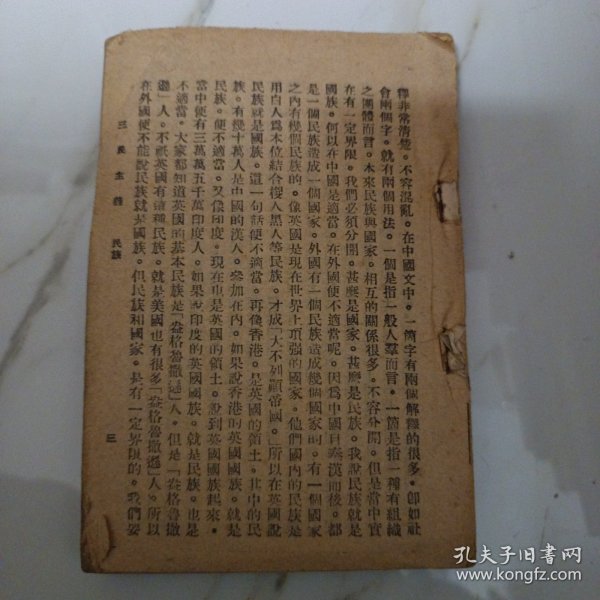 釋非常清楚。不容混亂。在中國文中。一箇字有兩個解釋的很多。卽如社
會兩個字。就有兩個用法。一個是指一般人羣而言。一箇是指一種有組織
之團體而言。本來民族與國家。相互的關係很多。不容分開。但是當中實
在有一定界限。我們必須分開。甚麼是國家。甚麼是民族。我說民族就是
國族。何以在中國是適當。在外國便不適當呢。因爲中國自秦漢而後。都
是一個民族造成一個國家。外國有一個民族造成幾個國家的。有一個國家
之內有幾個民族的。像英國是現在世界上頂强的國家。他們國內的民族是
用白人爲本位結合棕人黑人等民族。才成「大不列顚帝國。」所以在英國說
民族就是國族。這一句話便不適當。再像香港。是英國的領土。其中的民
族。有幾十萬人是中國的漢人。參加在內。如果說香港的英國國族。就是
民族。便不適當。又像印度。現在也是英國的領土。說到英國國族起來。
當中便有三萬萬五千萬印度人。如果說印度的英國國族。就是民族。也是
不適當。大家都知道英國的基本民族是「盎格魯撒遜」人。但是「盎格魯撒
遜」人。不祇英國有這種民族。就是美國也有很多「盎格魯撒遜」人。所以
在外國便不能說民族就是國族。但民族和國家。是有一定界限的。我們要
三民主義 民族 三
孔夫子旧书网
www.kongfz.com